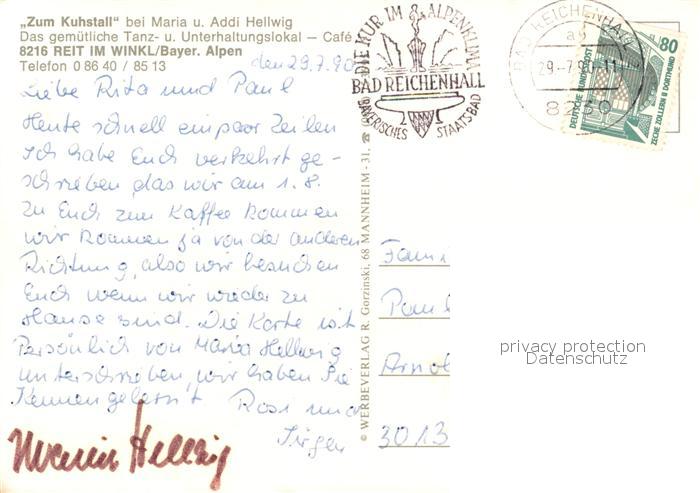 „Zum Kuhstall“ bei Maria u. Addi Hellwig
Das gemütliche Tanz- u. Unterhaltungslokal – Café
8216 REIT IM WINKL/Bayer. Alpen
Telefon 0 86 40 / 85 13
den 29.7.90
Liebe Rita und Paul
Heute schnell ein paar Zeilen
Ich habe Euch verkehrt ge-
schrieben, das wir am 1.8.
zu Euch zum Kaffee kommen
wir kommen ja von der anderen
Richtung, also wir besuchen
Euch wenn wir wieder zu
Hause sind. Die Karte ist
Persönlich von Maria Hellwig
unterschrieben, wir haben Sie
Kennengelernt Rosi und
Jürgen
Maria Hellwig
© WERBEVERLAG R. Gorzinski, 68 MANNHEIM - 31.
DIE KUR IM ALPENKLIMA
BAD REICHENHALL
BAYERISCHES STAATSBAD
BAD REICHENHALL
ab
29.-7.90-11
8230
80
DEUTSCHE BUNDESPOST
ZECHE ZOLLERN II DORTMUND
Fami
Paul
Arnol
3013
privacy protection
Datenschutz